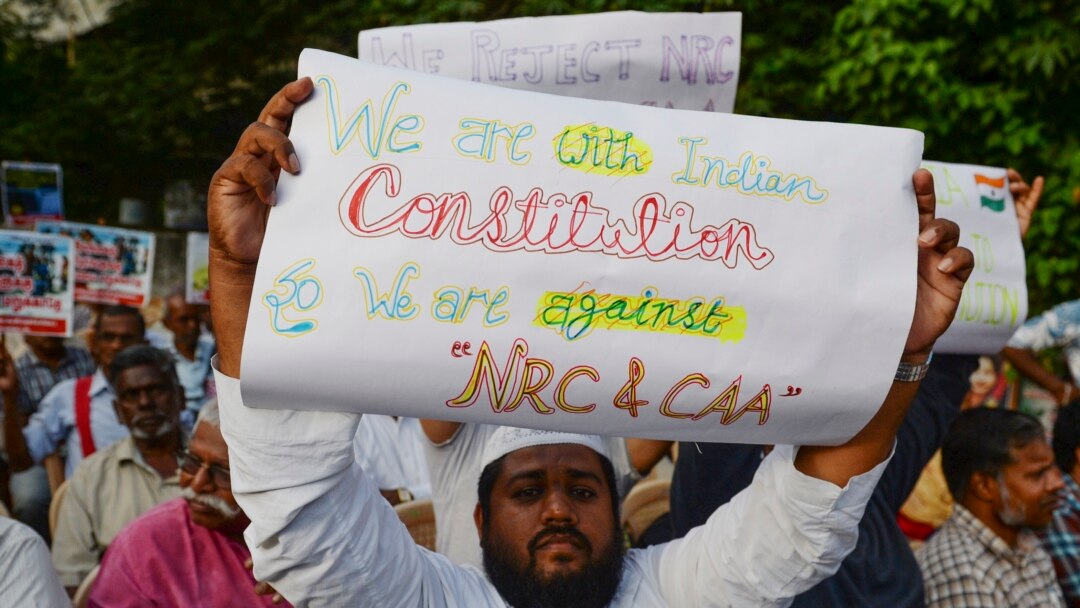 We Reject NRC
We are with Indian
Constitution
We are against
"NRC & CAA"
TO